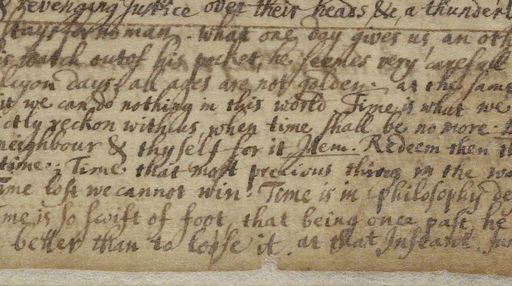 & revenging Justice over their heads & a thunder
stays for no man. what one day gives us, an oth
is watch out of his pocket, he seems very carefull
lcyon days, all ages are not golden. at the same
ut we can do nothing in this world Time is what we
ctly reckon with us, when time shall be no more.
neighbour & thy self for it Item. Redeem then th
time. Time that most precious thing in the wo
ime lost we cannot win. Time is in philosophy de
me is so swift of foot, that being once past, he
better than to lose it. at that Instant. Ju